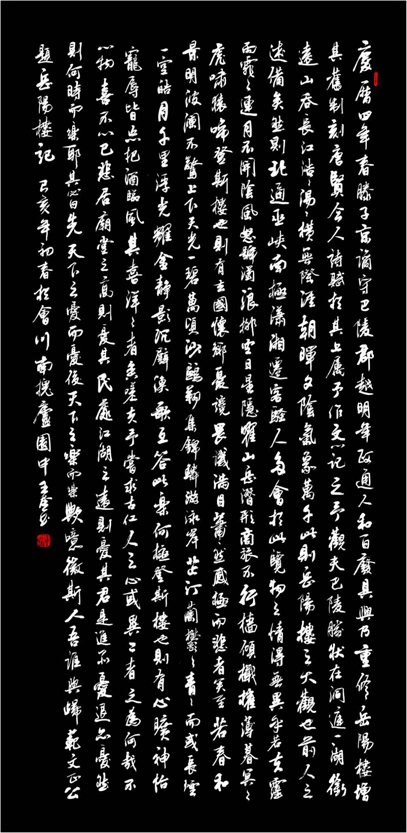 慶曆四年春滕子京謫守巴陵郡越明年政通人和百廢具興乃重修岳陽樓增
其舊制刻唐賢今人詩賦於其上屬予作文以記之予觀夫巴陵勝狀在洞庭一湖銜
遠山吞長江浩浩湯湯橫無際涯朝暉夕陰氣象萬千此則岳陽樓之大觀也前人之
述備矣然則北通巫峽南極瀟湘遷客騷人多會於此覽物之情得無異乎若夫霪
雨霏霏連月不開陰風怒號濁浪排空日星隱耀山岳潛形商旅不行檣傾楫摧薄暮冥冥
虎嘯猿啼登斯樓也則有去國懷鄉憂讒畏譏滿目蕭然感極而悲者矣至若春和
景明波瀾不驚上下天光一碧萬頃沙鷗翔集錦鱗游泳岸芷汀蘭鬱鬱青青而或長煙
一空皓月千里浮光耀金靜影沉璧漁歌互答此樂何極登斯樓也則有心曠神怡
寵辱皆忘把酒臨風其喜洋洋者矣嗟夫予嘗求古仁人之心或異二者之為何哉不
以物喜不以己悲居廟堂之高則憂其民處江湖之遠則憂其君是進亦憂退亦憂然
則何時而樂耶其必曰先天下之憂而憂後天下之樂而樂歟噫微斯人吾誰與歸範文正公
題岳陽樓記 己亥年初春於會川南槐廬國中